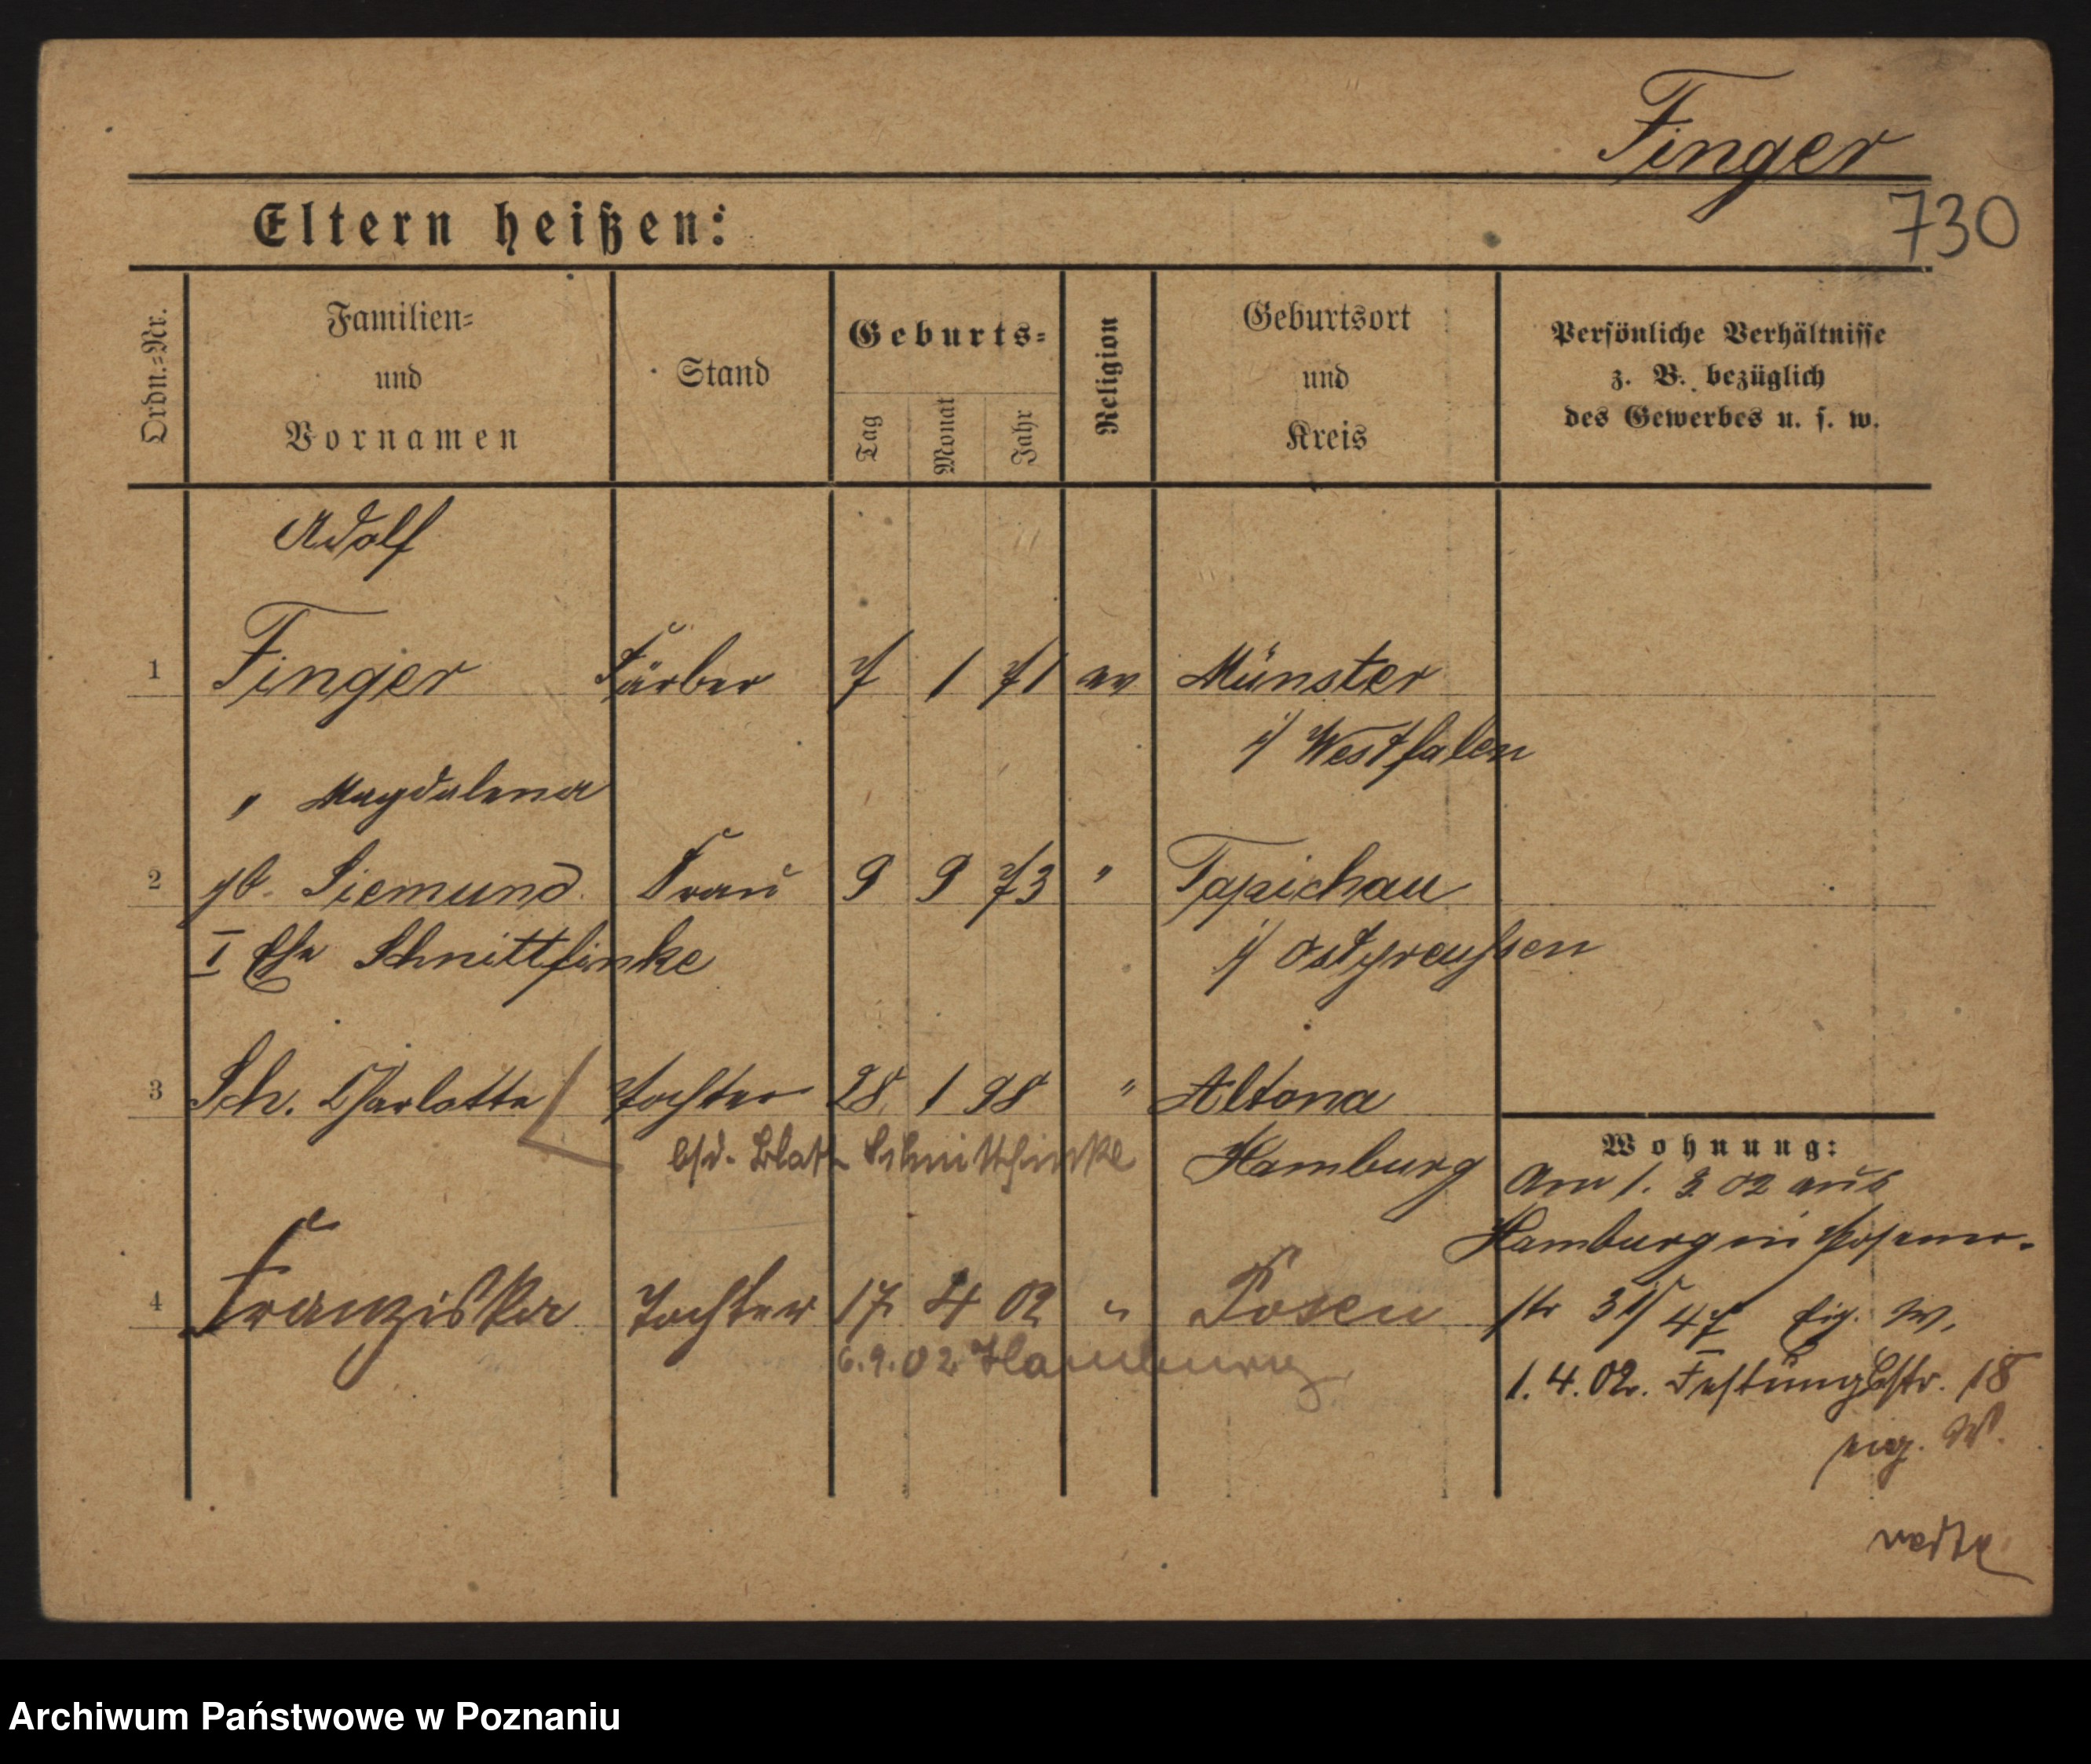 Finger
730
Eltern heißen:
Ordn.=Nr.
Familien=
und
Vornamen
Stand
Geburts=
Tag
Monat
Jahr
Religion
Geburtsort
und
Kreis
Persönliche Verhältnisse
z. B. bezüglich
des Gewerbes u. s. w.
Adolf
1 Finger Färber 7 1 71 ev Münster
i/ Westfalen
" Magdalena
2 gb. Siemund Frau 9 9 73 " Tapichau
I Ehe Schnittfinke i/ Ostpreußen
3 Sch. Charlotte Tochter 28 1 98 " Altona
bsd. Blatt Schnittfinke Hamburg
4 Franziska Tochter 17 4 02 " Posen
6.9.02 Hamburg
Wohnung:
Am 1. 3 02 aus
Hamburg in
str 31/47 Eig. W.
1.4.02. Festungsstr. 18
eig. W.
Archiwum Państwowe w Poznaniu